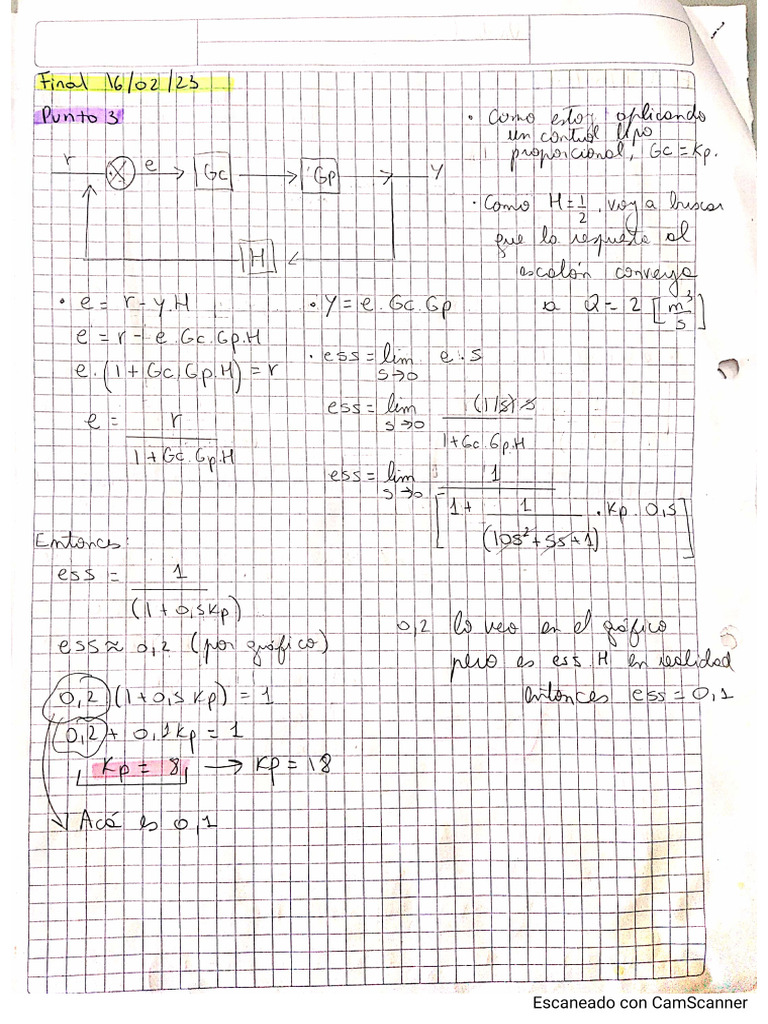 Final 16/02/23
Punto 3
r e Gc Gp Y
H
• Como estoy aplicando
un control tipo
proporcional, Gc = Kp.
• Como H = 1/2, voy a buscar
que la respuesta al
escalón converja
a Q = 2 [m³/s]
• e = r - y.H
e = r - e.Gc.Gp.H
e.(1+Gc.Gp.H) = r
e = r / (1+Gc.Gp.H)
• Y = e.Gc.Gp
• ess = lim s→0 e.s
ess = lim s→0 (1/s).s / (1+Gc.Gp.H)
ess = lim s→0 1 / [1 + 1/(10s²+5s+1) . Kp. 0,5]
Entonces:
ess = 1 / (1+0,5Kp)
ess ≈ 0,2 (por gráfico)
0,2 (1+0,5 Kp) = 1
0,2 + 0,1Kp = 1
Kp = 8 → Kp = 18
Acá es 0,1
0,2 lo veo en el gráfico
pero es ess.H en realidad
entonces ess = 0,1
Escaneado con CamScanner